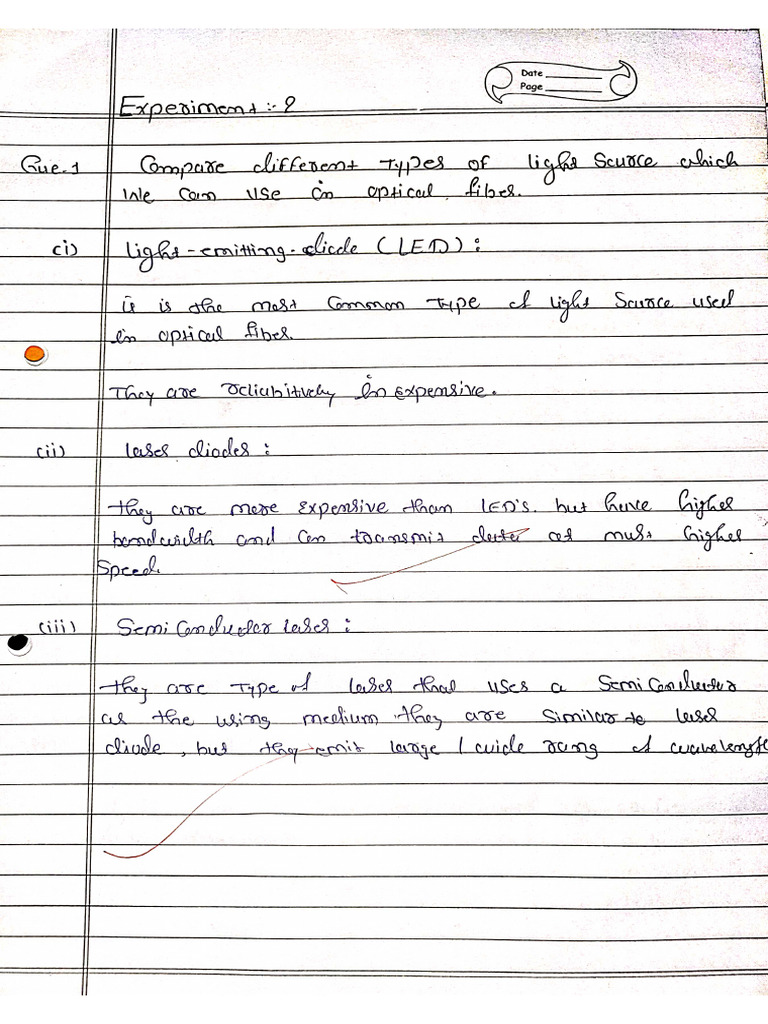 Date
Page
Experiment :- 2
Que.1 Compare different Types of light Source which
We Can Use in optical fiber.
(i) light-emitting-diode (LED) :
it is the most Common Type of light Source used
in optical fiber.
They are reliabitively in expensive.
(ii) laser diodes :
they are more Expensive than LED's. but have higher
bandwidth and Can transmit data at must higher
Speed.
(iii) Semi Conductor laser :
they are Type of laser that uses a Semi Conductor
as the using medium they are Similar to laser
diode, but they emit large / wide rang of wavelength